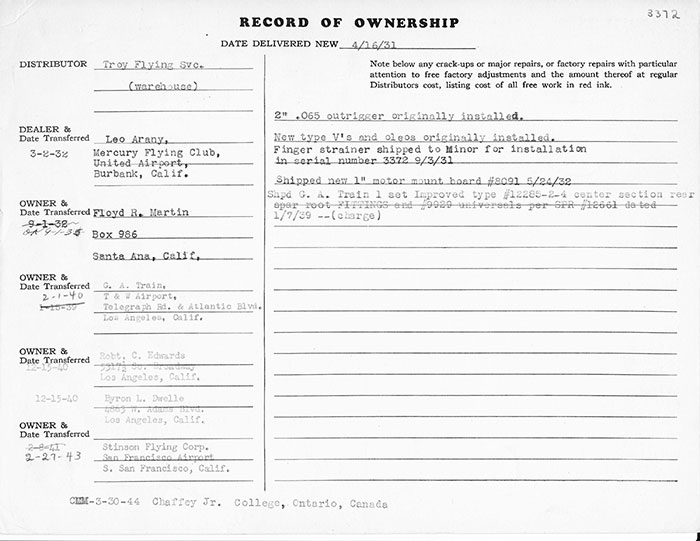 3372
RECORD OF OWNERSHIP
DATE DELIVERED NEW 4/16/31
DISTRIBUTOR Troy Flying Svc.
(warehouse)
Note below any crack-ups or major repairs, or factory repairs with particular
attention to free factory adjustments and the amount thereof at regular
Distributors cost, listing cost of all free work in red ink.
DEALER &
Date Transferred Leo Arany,
3-2-32 Mercury Flying Club,
United Airport,
Burbank, Calif.
OWNER &
Date Transferred Floyd R. Martin
9-1-32
Box 986
Santa Ana, Calif,
OWNER &
Date Transferred G. A. Train,
2-1-40 T & W Airport,
1-18-39 Telegraph Rd. & Atlantic Blvd.
Los Angeles, Calif.
OWNER &
Date Transferred Robt. C. Edwards
12-15-40 So. Broadway
Los Angeles, Calif.
12-15-40 Byron L. Dwelle
4863 W. Adams Blvd.
Los Angeles, Calif.
OWNER &
Date Transferred
2-8-41 Stinson Flying Corp.
2-27-43 San Francisco Airport
S. San Francisco, Calif.
2" .065 outrigger originally installed.
New type V's and oleos originally installed.
Finger strainer shipped to Minor for installation
in serial number 3372 9/3/31
Shipped new 1" motor mount board #8091 5/24/32
Shpd G. A. Train 1 set Improved type #12285-2-4 center section rear
spar root FITTINGS and #9929 universals per SPR #12661 dated
1/7/39 --(charge)
-3-30-44 Chaffey Jr. College, Ontario, Canada